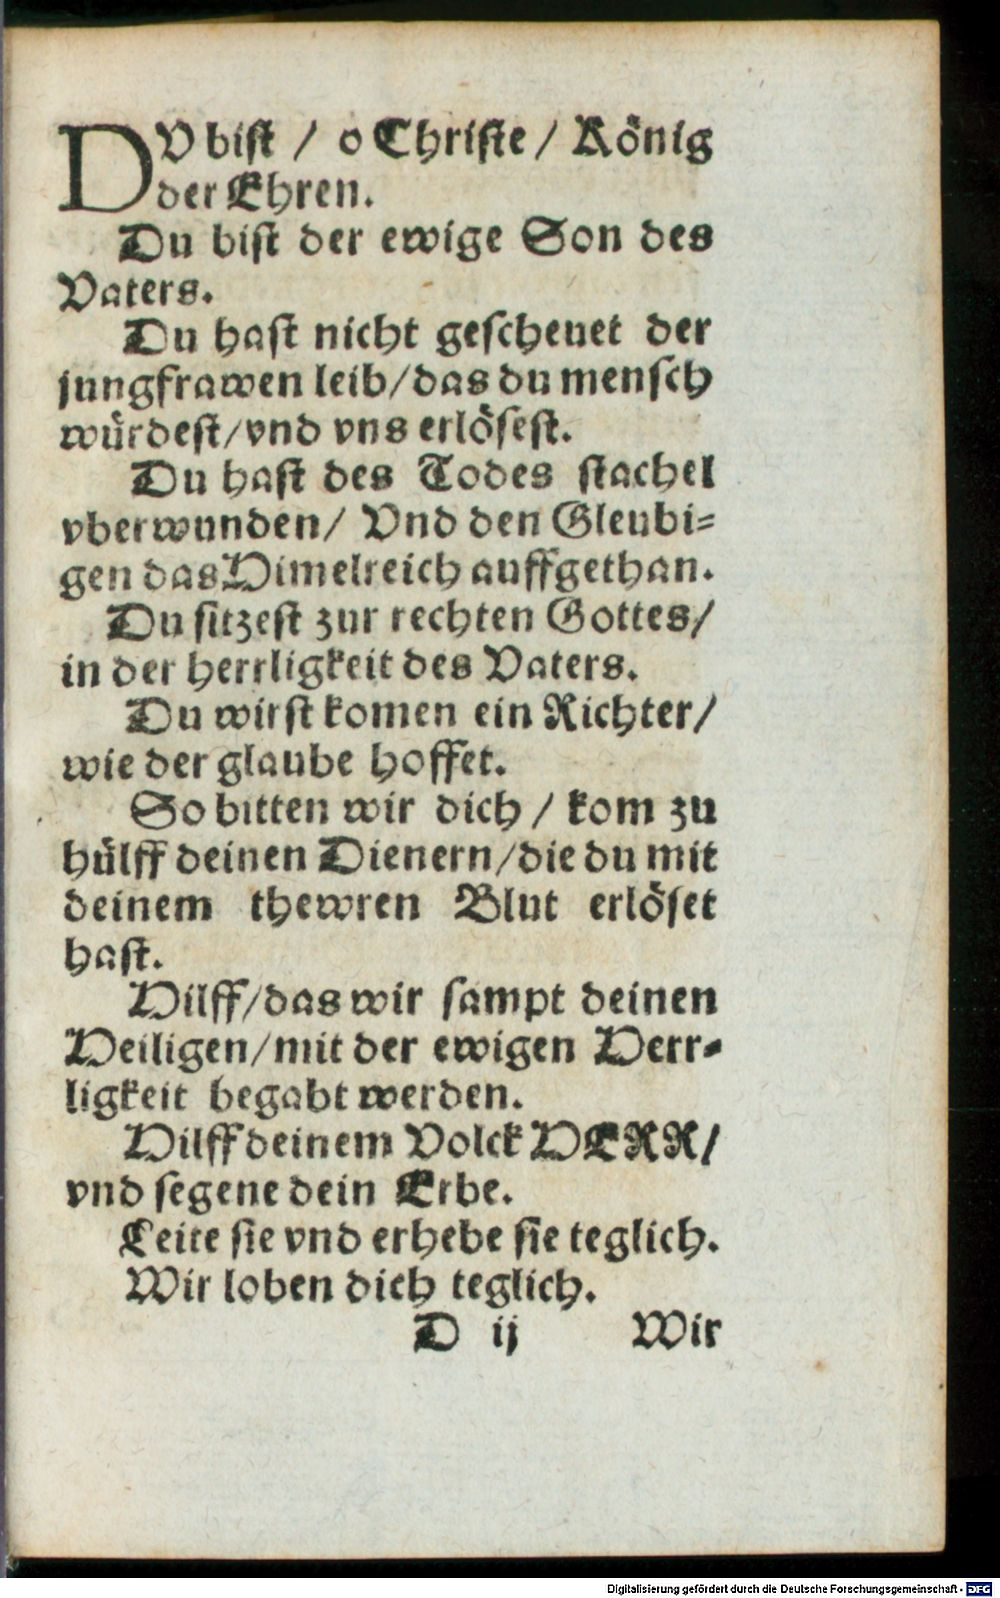 DV bist / o Christe / König
der Ehren.
Du bist der ewige Son des
Vaters.
Du hast nicht gescheuet der
jungfrawen leib/das du mensch
würdest/vnd vns erlösest.
Du hast des Todes stachel
vberwunden/ Vnd den Gleubi=
gen das Himelreich auffgethan.
Du sitzest zur rechten Gottes/
in der herrligkeit des Vaters.
Du wirst komen ein Richter/
wie der glaube hoffet.
So bitten wir dich / kom zu
hülff deinen Dienern/die du mit
deinem thewren Blut erlöset
hast.
Hilff/das wir sampt deinen
Heiligen/mit der ewigen Herr=
ligkeit begabt werden.
Hilff deinem Volck HERR/
vnd segene dein Erbe.
Leite sie vnd erhebe sie teglich.
Wir loben dich teglich.
D ij Wir
Digitalisierung gefördert durch die Deutsche Forschungsgemeinschaft - DFG